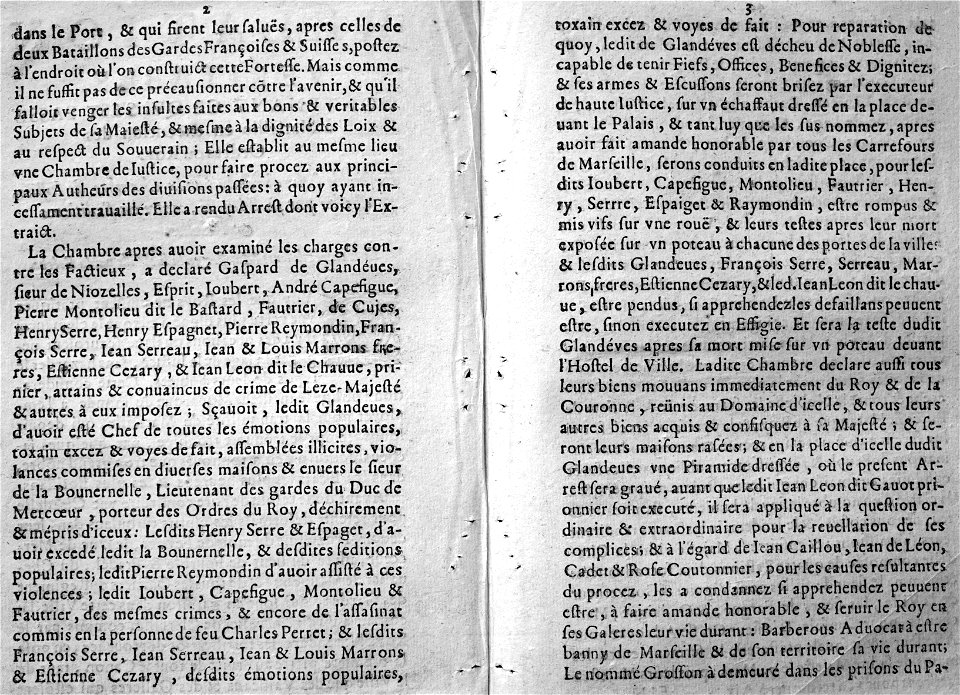 2
dans le Port, & qui firent leur saluës, apres celles de
deux Bataillons des Gardes Françoises & Suisses, postez
à l'endroit où l'on construict cette Forteſſe. Mais comme
il ne ſuffit pas de ce précausionner cōtre l'avenir, & qu'il
falloit venger les inſultes faites aux bons & veritables
Subjets de ſa Maieſté, & meſme à la dignité des Loix &
au reſpect du Souuerain ; Elle eſtablit au meſme lieu
vne Chambre de Iuſtice, pour faire procez aux princi-
paux Autheurs des diuiſions paſſées: à quoy ayant in-
ceſſament trauaillé. Elle a rendu Arreſt dont voicy l'Ex-
traict.
La Chambre apres auoir examiné les charges con-
tre les Factieux, a declaré Gaſpard de Glandéues,
ſieur de Niozelles, Eſprit, Ioubert, André Capefigue,
Pierre Montolieu dit le Baſtard, Fautrier, de Cujes,
Henry Serre, Henry Eſpagnet, Pierre Reymondin, Fran-
çois Serre, Iean Serreau, Iean & Louis Marrons fre-
res, Eſtienne Cezary, & Iean Leon dit le Chauue, pri-
nier, attains & conuaincus de crime de Leze-Majeſté
& autres à eux impoſez ; Sçauoit, ledit Glandeues,
d'auoir eſté Chef de toutes les émotions populaires,
toxain excez & voyes de fait, aſſemblées illicites, vio-
lances commiſes en diuerſes maiſons & enuers le ſieur
de la Bounernelle, Lieutenant des gardes du Duc de
Metcœur, porteur des Ordres du Roy, déchirement
& mépris d'iceux: Leſdits Henry Serre & Eſpaget, d'a-
uoir excedé ledit la Bounernelle, & deſdites ſeditions
populaires; ledit Pierre Reymondin d'auoir aſſiſté à ces
violences ; ledit Ioubert, Capefigue, Montolieu &
Fautrier, des meſmes crimes, & encore de l'aſſaſinat
commis en la perſonne de feu Charles Perret; & leſdits
François Serre, Iean Serreau, Iean & Louis Marrons
& Eſtienne Cezary, deſdits émotions populaires,
3
toxain excez & voyes de fait : Pour reparation de
quoy, ledit de Glandéves eſt décheu de Nobleſſe, in-
capable de tenir Fiefs, Offices, Benefices & Dignitez;
& ſes armes & Eſcuſſons ſeront briſez par l'executeur
de haute Iuſtice, ſur vn échaffaut dreſſé en la place de-
uant le Palais, & tant luy que les ſus nommez, apres
auoir fait amande honorable par tous les Carrefours
de Marſeille, ſerons conduits en ladite place, pour leſ-
dits Ioubert, Capefigue, Montolieu, Fautrier, Hen-
ry, Serrre, Eſpaiget & Raymondin, eſtre rompus &
mis vifs ſur vne rouë, & leurs teſtes apres leur mort
expoſée ſur vn poteau à chacune des portes de la ville:
& leſdits Glandeues, François Serre, Serreau, Mar-
rons, freres, Eſtienne Cezary, & led. Iean Leon dit le chau-
ue, eſtre pendus, ſi apprehendez les defaillans peuuent
eſtre, ſinon executez en Effigie. Et ſera la teſte dudit
Glandéves apres ſa mort miſe ſur vn poteau deuant
l'Hoſtel de Ville. Ladite Chambre declare auſſi tous
leurs biens mouuans immediatement du Roy & de la
Couronne, reünis au Domaine d'icelle, & tous leurs
autres biens acquis & confiſquez à ſa Majeſté ; & ſe-
ront leurs maiſons raſées; & en la place d'icelle dudit
Glandeues vne Piramide dreſſée, où le preſent Ar-
reſt ſera graué, auant que ledit Iean Leon dit Gauot pri-
onnier ſoit executé, il ſera appliqué à la queſtion or-
dinaire & extraordinaire pour la reuellation de ſes
complices; & à l'égard de Iean Caillou, Iean de Léon,
Cadet & Roſe Coutonnier, pour les cauſes reſultantes
du procez, les a condannez ſi apprehendez peuuent
eſtre, à faire amande honorable, & ſeruir le Roy en
ſes Galeres leur vie durant: Barberous Aduocat à eſtre
banny de Marſeille & de ſon territoire ſa vie durant;
Le nommé Groſſon à demeuré dans les priſons du Pa-